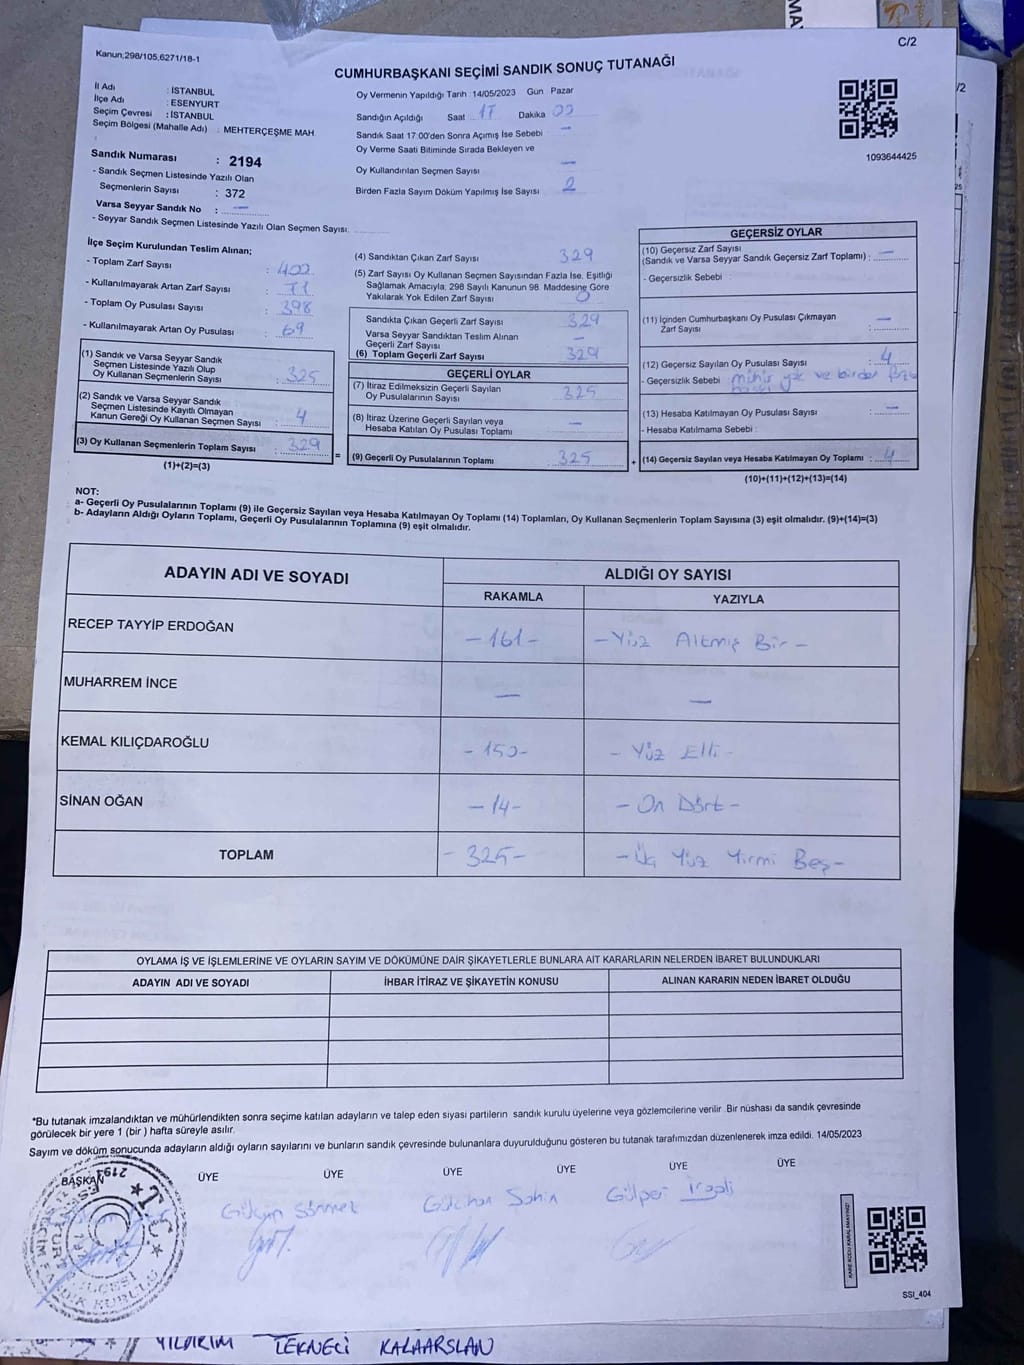 C/2
Kanun;298/105,6271/18-1
CUMHURBAŞKANI SEÇİMİ SANDIK SONUÇ TUTANAĞI
İl Adı : İSTANBUL
İlçe Adı : ESENYURT
Seçim Çevresi : İSTANBUL
Seçim Bölgesi (Mahalle Adı) : MEHTERÇEŞME MAH
Sandık Numarası : 2194
- Sandık Seçmen Listesinde Yazılı Olan
Seçmenlerin Sayısı : 372
Varsa Seyyar Sandık No : —
- Seyyar Sandık Seçmen Listesinde Yazılı Olan Seçmen Sayısı:
Oy Vermenin Yapıldığı Tarih : 14/05/2023 Gün Pazar
Sandığın Açıldığı Saat 17 Dakika 00
Sandık Saat 17:00'den Sonra Açımış İse Sebebi —
Oy Verme Saati Bitiminde Sırada Bekleyen ve
Oy Kullandırılan Seçmen Sayısı —
Birden Fazla Sayım Döküm Yapılmış İse Sayısı 2
1093644425
İlçe Seçim Kurulundan Teslim Alınan;
- Toplam Zarf Sayısı : 400
- Kullanılmayarak Artan Zarf Sayısı : 71
- Toplam Oy Pusulası Sayısı : 398
- Kullanılmayarak Artan Oy Pusulası : 69
(1) Sandık ve Varsa Seyyar Sandık
Seçmen Listesinde Yazılı Olup
Oy Kullanan Seçmenlerin Sayısı : 325
(2) Sandık ve Varsa Seyyar Sandık
Seçmen Listesinde Kayıtlı Olmayan
Kanun Gereği Oy Kullanan Seçmen Sayısı : 4
(3) Oy Kullanan Seçmenlerin Toplam Sayısı : 329
(1)+(2)=(3)
=
(4) Sandıktan Çıkan Zarf Sayısı 329
(5) Zarf Sayısı Oy Kullanan Seçmen Sayısından Fazla İse, Eşitliği
Sağlamak Amacıyla, 298 Sayılı Kanunun 98. Maddesine Göre
Yakılarak Yok Edilen Zarf Sayısı 0
Sandıkta Çıkan Geçerli Zarf Sayısı 329
Varsa Seyyar Sandıktan Teslim Alınan
Geçerli Zarf Sayısı —
(6) Toplam Geçerli Zarf Sayısı 329
GEÇERLİ OYLAR
(7) İtiraz Edilmeksizin Geçerli Sayılan
Oy Pusulalarının Sayısı 325
(8) İtiraz Üzerine Geçerli Sayılan veya
Hesaba Katılan Oy Pusulası Toplamı —
(9) Geçerli Oy Pusulalarının Toplamı 325
+
GEÇERSİZ OYLAR
(10) Geçersiz Zarf Sayısı
(Sandık ve Varsa Seyyar Sandık Geçersiz Zarf Toplamı) : —
- Geçersizlik Sebebi :
(11) İçinden Cumhurbaşkanı Oy Pusulası Çıkmayan
Zarf Sayısı : —
(12) Geçersiz Sayılan Oy Pusulası Sayısı : 4
- Geçersizlik Sebebi : mühür yok ve birden fazla
(13) Hesaba Katılmayan Oy Pusulası Sayısı : —
- Hesaba Katılmama Sebebi :
(14) Geçersiz Sayılan veya Hesaba Katılmayan Oy Toplamı : 4
(10)+(11)+(12)+(13)=(14)
NOT:
a- Geçerli Oy Pusulalarının Toplamı (9) ile Geçersiz Sayılan veya Hesaba Katılmayan Oy Toplamı (14) Toplamları, Oy Kullanan Seçmenlerin Toplam Sayısına (3) eşit olmalıdır. (9)+(14)=(3)
b- Adayların Aldığı Oyların Toplamı, Geçerli Oy Pusulalarının Toplamına (9) eşit olmalıdır.
ADAYIN ADI VE SOYADI ALDIĞI OY SAYISI
RAKAMLA YAZIYLA
RECEP TAYYİP ERDOĞAN -161- -Yüz Altmış Bir-
MUHARREM İNCE — —
KEMAL KILIÇDAROĞLU -150- -Yüz Elli-
SİNAN OĞAN -14- -On Dört-
TOPLAM -325- -Üç Yüz Yirmi Beş-
OYLAMA İŞ VE İŞLEMLERİNE VE OYLARIN SAYIM VE DÖKÜMÜNE DAİR ŞİKAYETLERLE BUNLARA AİT KARARLARIN NELERDEN İBARET BULUNDUKLARI
ADAYIN ADI VE SOYADI İHBAR İTİRAZ VE ŞİKAYETİN KONUSU ALINAN KARARIN NEDEN İBARET OLDUĞU
*Bu tutanak imzalandıktan ve mühürlendikten sonra seçime katılan adayların ve talep eden siyasi partilerin sandık kurulu üyelerine veya gözlemcilerine verilir. Bir nüshası da sandık çevresinde
görülecek bir yere 1 (bir ) hafta süreyle asılır.
Sayım ve döküm sonucunda adayların aldığı oyların sayılarını ve bunların sandık çevresinde bulunanlara duyurulduğunu gösteren bu tutanak tarafımızdan düzenlenerek imza edildi. 14/05/2023
BAŞKAN ÜYE ÜYE ÜYE ÜYE ÜYE ÜYE
Gülçin Gülcihan Şahin
KARE KODU KARALAMAYINIZ!
SSI_404
YILDIRIM TEKNECİ KALAARSLAN